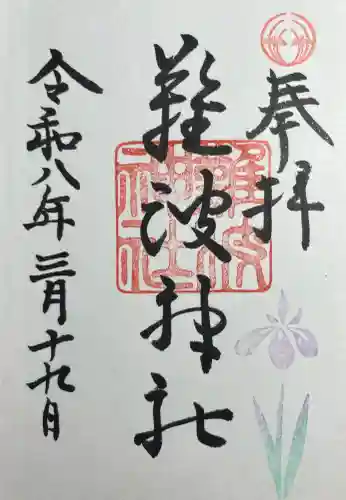 奉拝
難波神社
令和八年三月十九日
難波神社